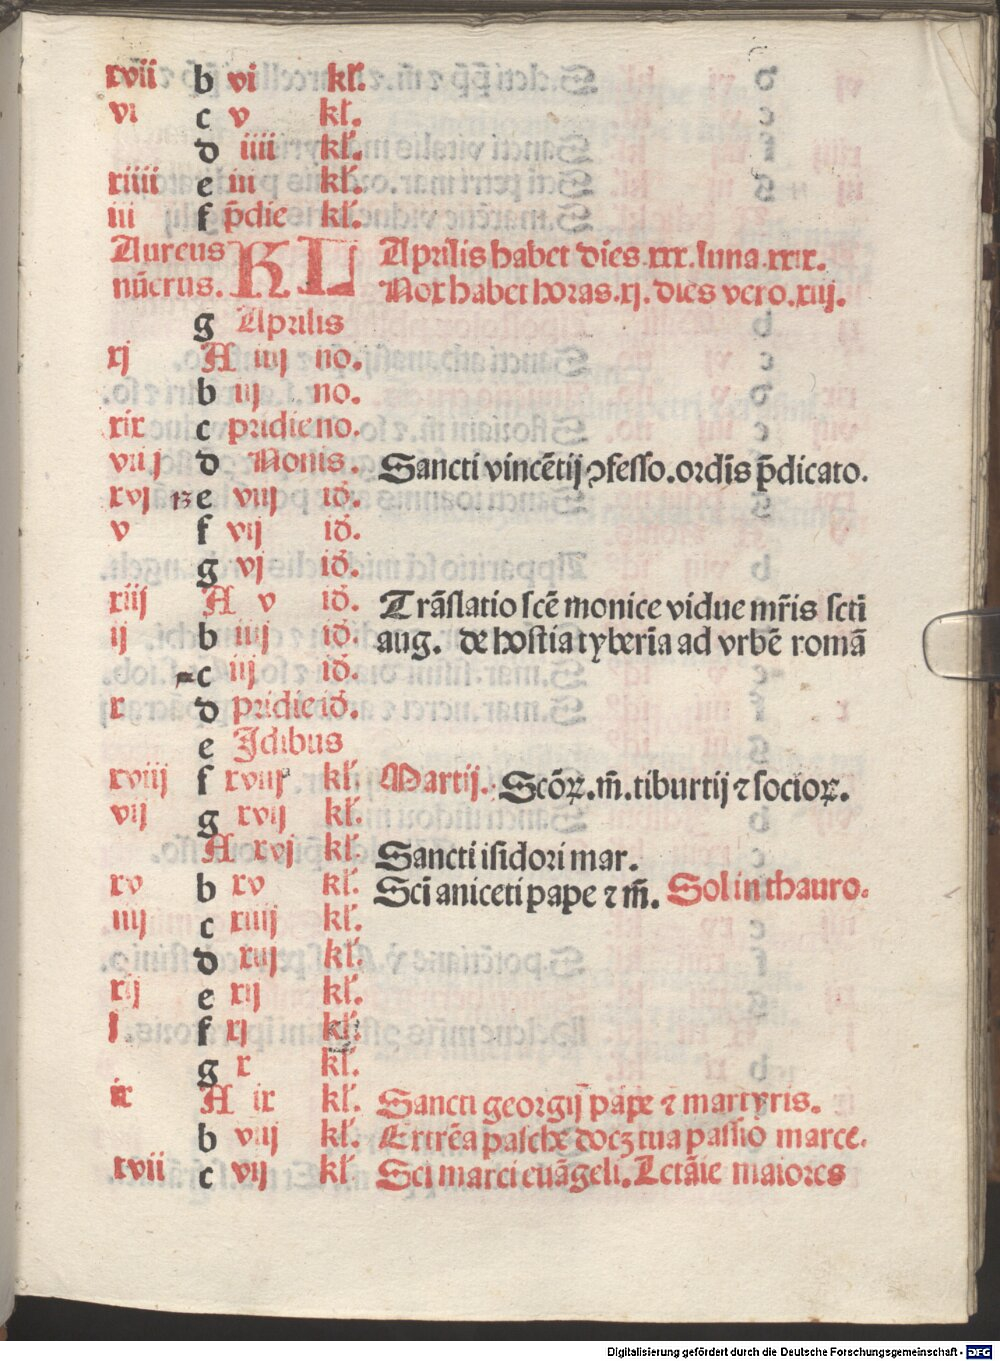 xvii b vi kl'.
vi c v kl'.
d iiii kl'.
xiiii e iii kl'.
iii f p̄die kl'.
Aureus KL Aprilis habet dies.xxx.luna.xxix.
nūerus. Nox habet horas.xj.dies vero.xiij.
g Aprilis
xj A iiij no.
b iij no.
xix c pridie no.
viij d Nonis. Sancti vincētij ꝯfesso.ordīs p̄dicato.
xvj 13 e viij id'.
v f vij id'.
g vj id'.
xiij A v id'. Trāslatio scē monice vidue mr̄is scti
ij b iiij id'. aug. de hostia tyberīa ad vrbē romā
c iij id'.
x d pridie id'.
e Jdibus
xviij f xviij kl'. Martij. Scōꝝ.m̄.tiburtij ⁊ socioꝝ.
vij g xvij kl'.
A xvj kl'. Sancti isidori mar.
xv b xv kl'. Sci aniceti pape ⁊ m̄. Sol in thauro.
iiij c xiiij kl'.
d xiij kl'.
xij e xij kl'.
j f xj kl'.
g x kl'.
ix A ix kl'. Sancti georgij pape ⁊ martyris.
b viij kl'. Extrēa pasche docꝫ tua passio marce.
xvii c vij kl' Sci marci euāgeli. Letāie maiores
Digitalisierung gefördert durch die Deutsche Forschungsgemeinschaft - DFG